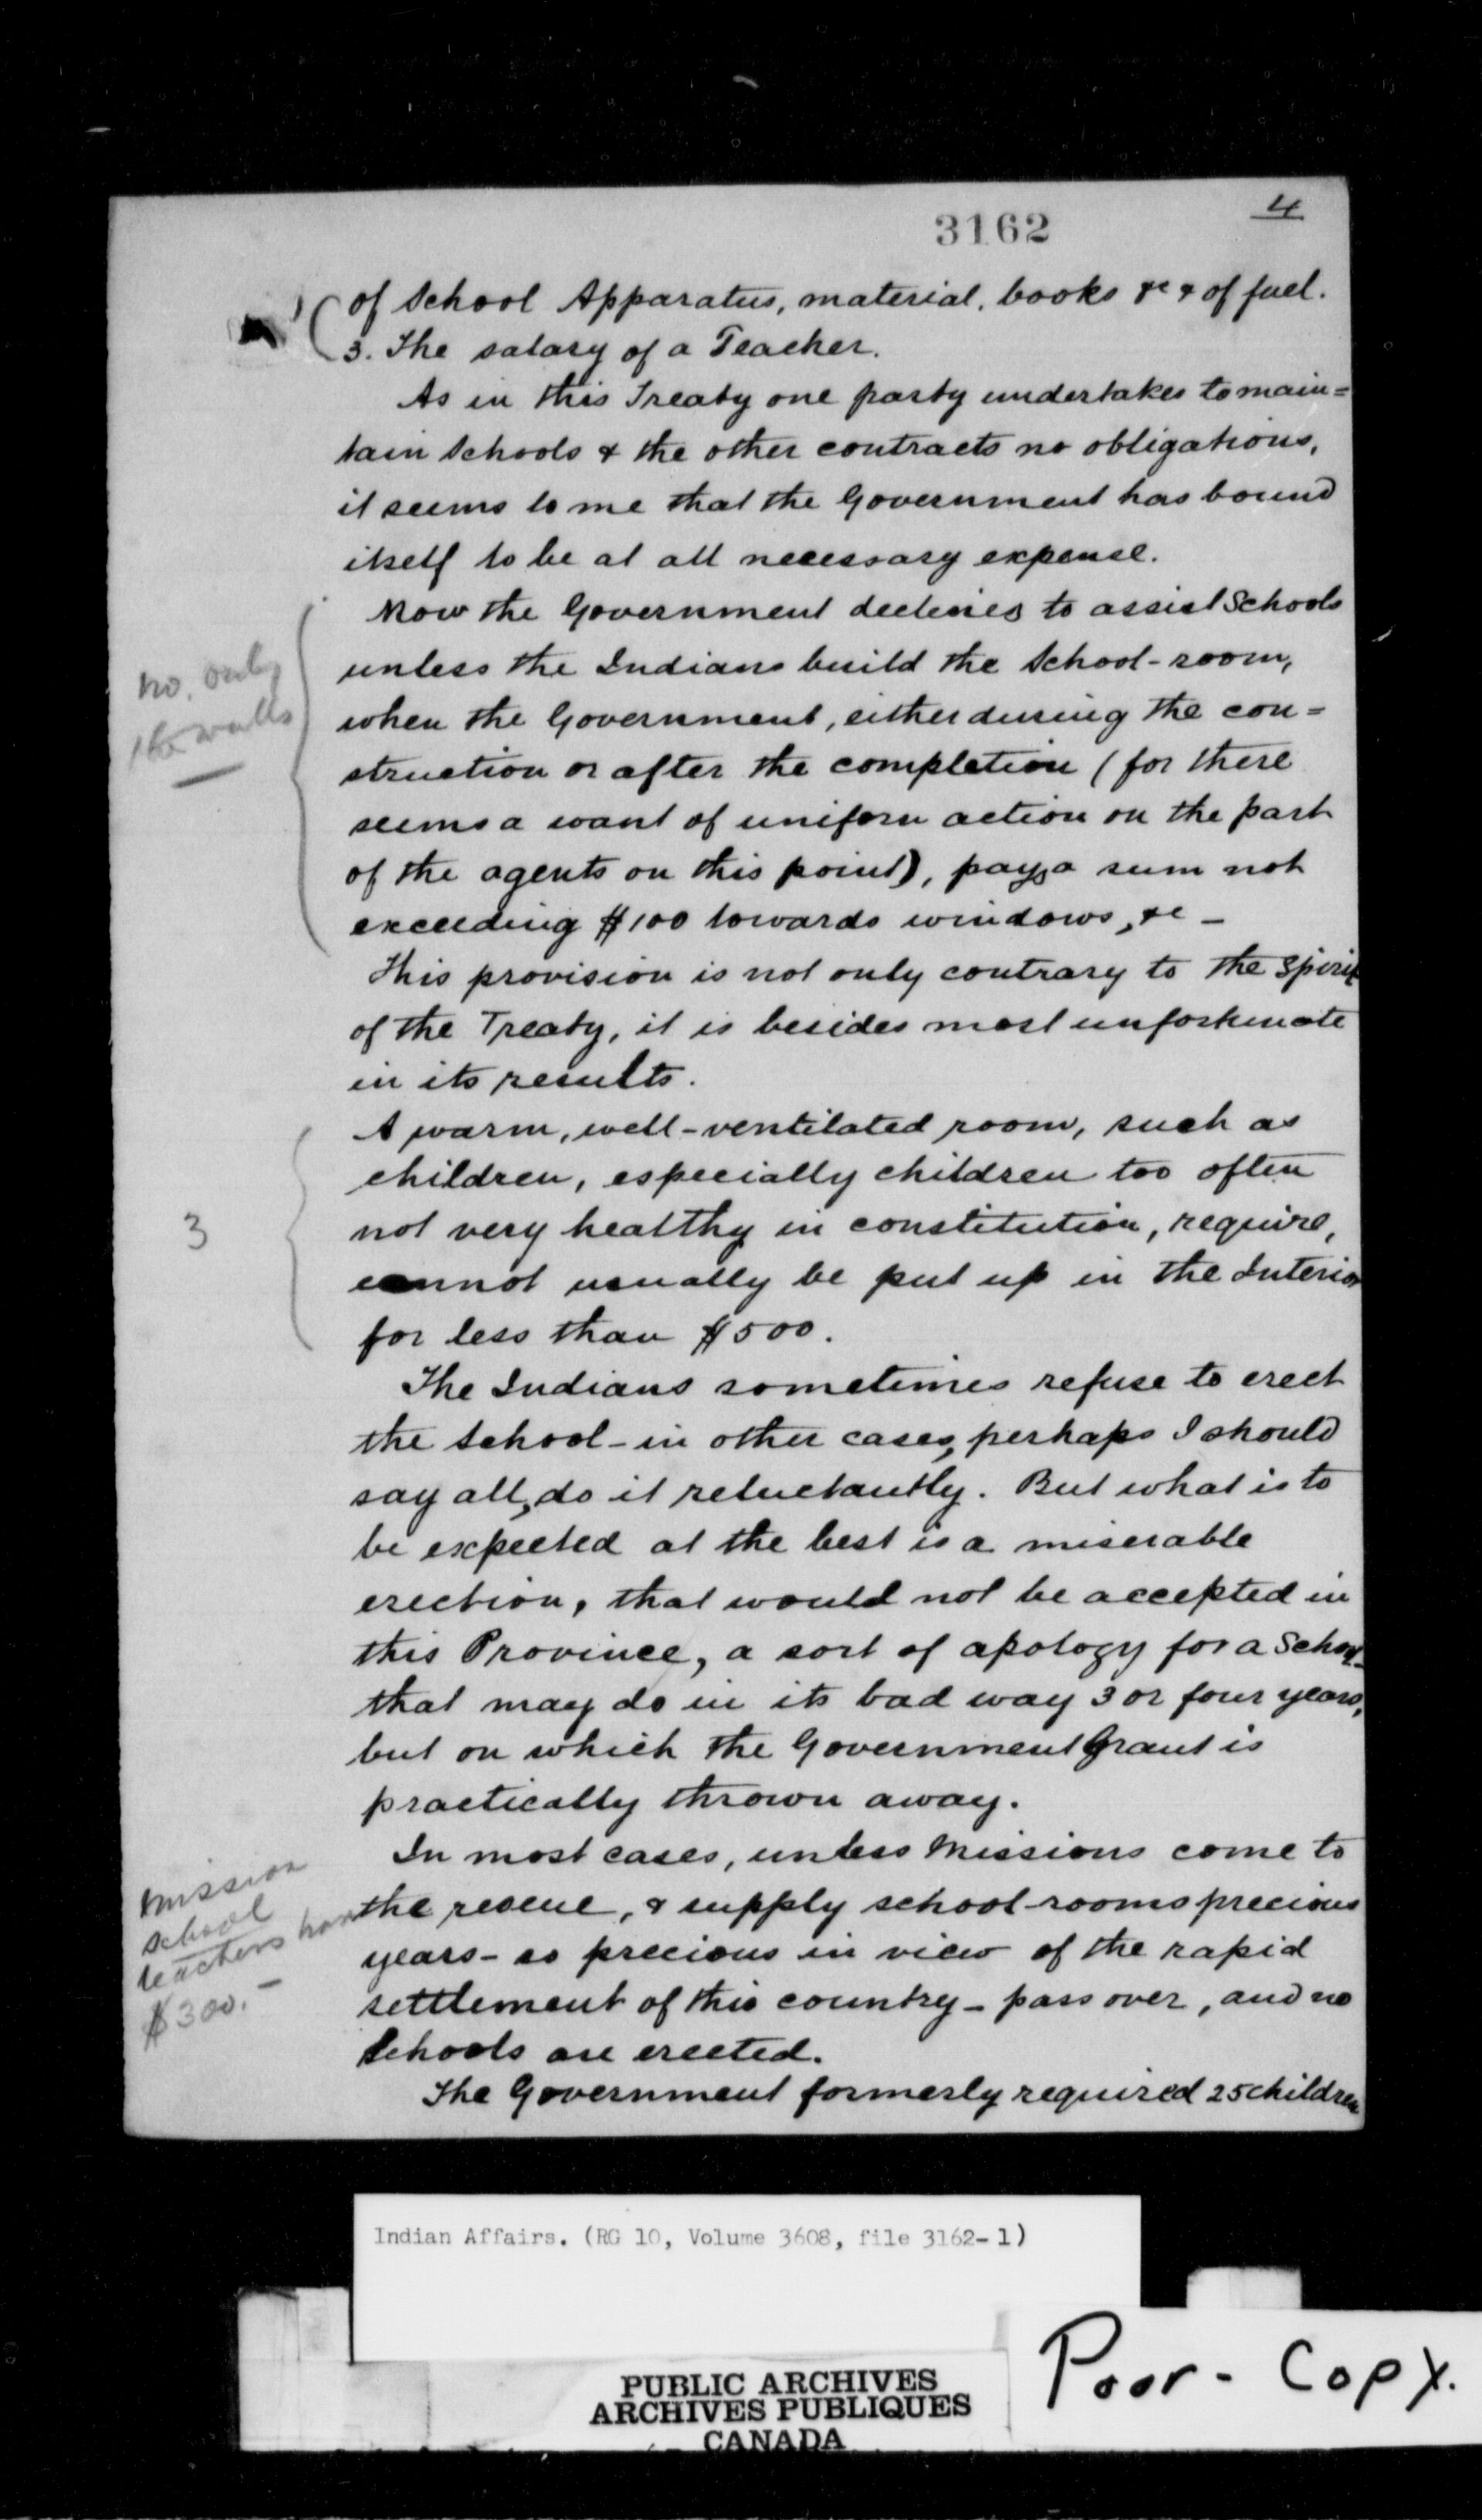 4
3162
of School Apparatus, material, books &c & of fuel.
3. The salary of a Teacher.
As in this Treaty one party undertakes to main=
tain Schools & the other contracts no obligations,
it seems to me that the Government has bound
itself to be at all necessary expense.
Now the Government declines to assist Schools
no, only
unless the Indians build the School-room,
the walls
when the Government, either during the con=
struction or after the completion (for there
seems a want of uniform action on the part
of the agents on this point), pays a sum not
exceeding $100 towards windows, &c -
This provision is not only contrary to the spirit
of the Treaty, it is besides most unfortunate
in its results.
A warm, well-ventilated room, such as
children, especially children too often
3
not very healthy in constitution, require,
cannot usually be put up in the Interior
for less than $500.
The Indians sometimes refuse to erect
the School - in other cases, perhaps I should
say all, do it reluctantly. But what is to
be expected at the best is a miserable
erection, that would not be accepted in
this Province, a sort of apology for a School
that may do in its bad way 3 or four years,
but on which the Government Grant is
practically thrown away.
In most cases, unless Missions come to
Mission
school
teachers have
$300. -
the rescue, & supply school-rooms precious
years - so precious in view of the rapid
settlement of this country - pass over, and no
Schools are erected.
The Government formerly required 25 children
Indian Affairs. (RG 10, Volume 3608, file 3162-1)
PUBLIC ARCHIVES
ARCHIVES PUBLIQUES
CANADA
Poor - Copy.